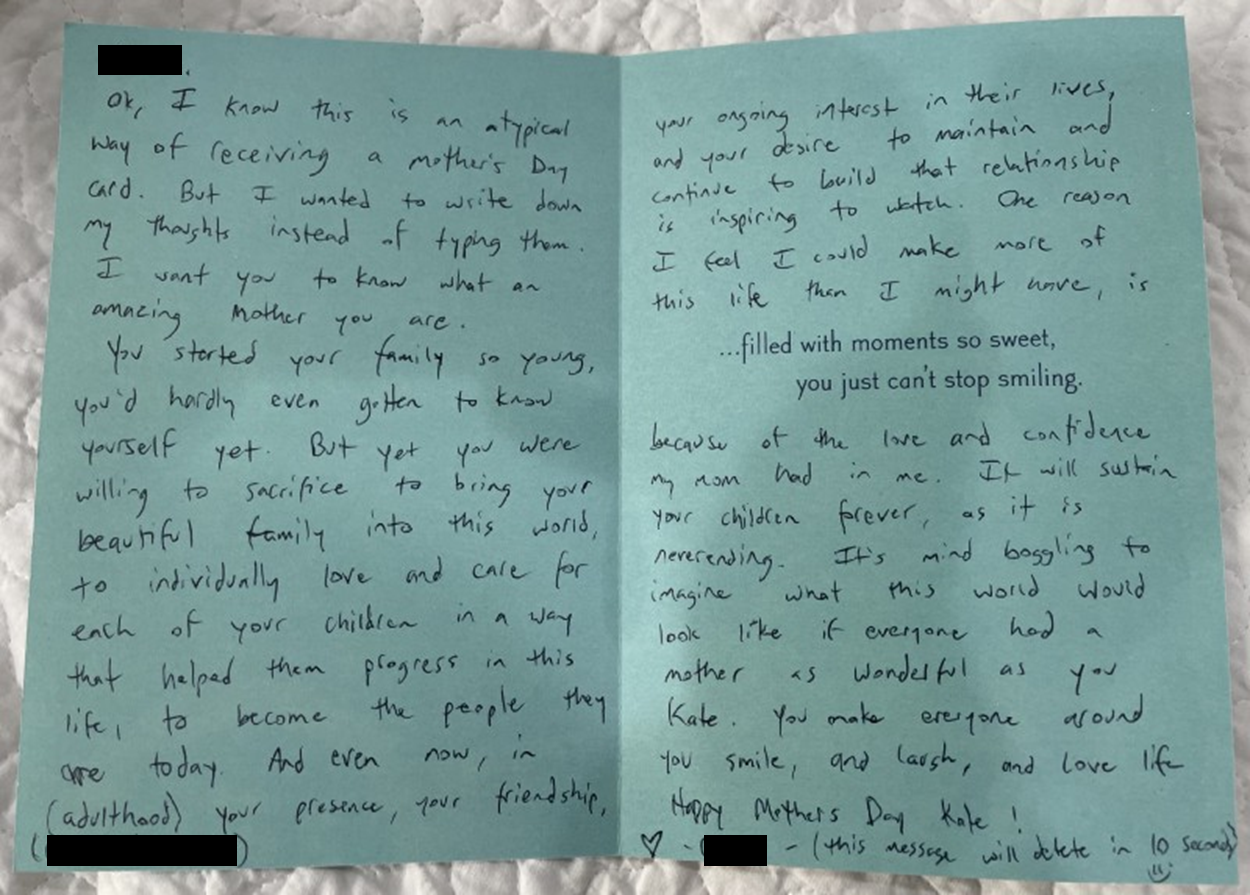 Ok, I know this is an atypical
way of receiving a mother's Day
card. But I wanted to write down
my thoughts instead of typing them.
I want you to know what an
amazing Mother you are.
You started your family so young,
you'd hardly even gotten to know
yourself yet. But yet you were
willing to sacrifice to bring your
beautiful family into this world,
to individually love and care for
each of your children in a way
that helped them progress in this
life, to become the people they
are today. And even now, in
(adulthood) your presence, your friendship,
your ongoing interest in their lives,
and your desire to maintain and
continue to build that relationship
is inspiring to watch. One reason
I feel I could make more of
this life than I might have, is
...filled with moments so sweet,
you just can't stop smiling.
because of the love and confidence
my mom had in me. It will sustain
your children forever, as it is
neverending. It's mind boggling to
imagine what this world would
look like if everyone had a
mother as wonderful as you
Kate. You make everyone around
you smile, and laugh, and love life
Happy Mothers Day Kate!
♡ - - (this message will delete in 10 seconds)